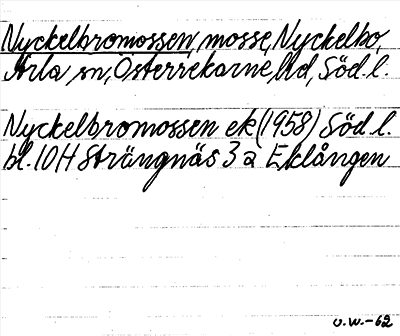 Nyckelbromossen, mosse, Nyckelbo,
Ärla sn, Österrekarne, hd, Söd. l.
Nyckelbromossen ek (1958) Söd. l.
bl. 10H Strängnäs 3 a Eklången
v.w.-62